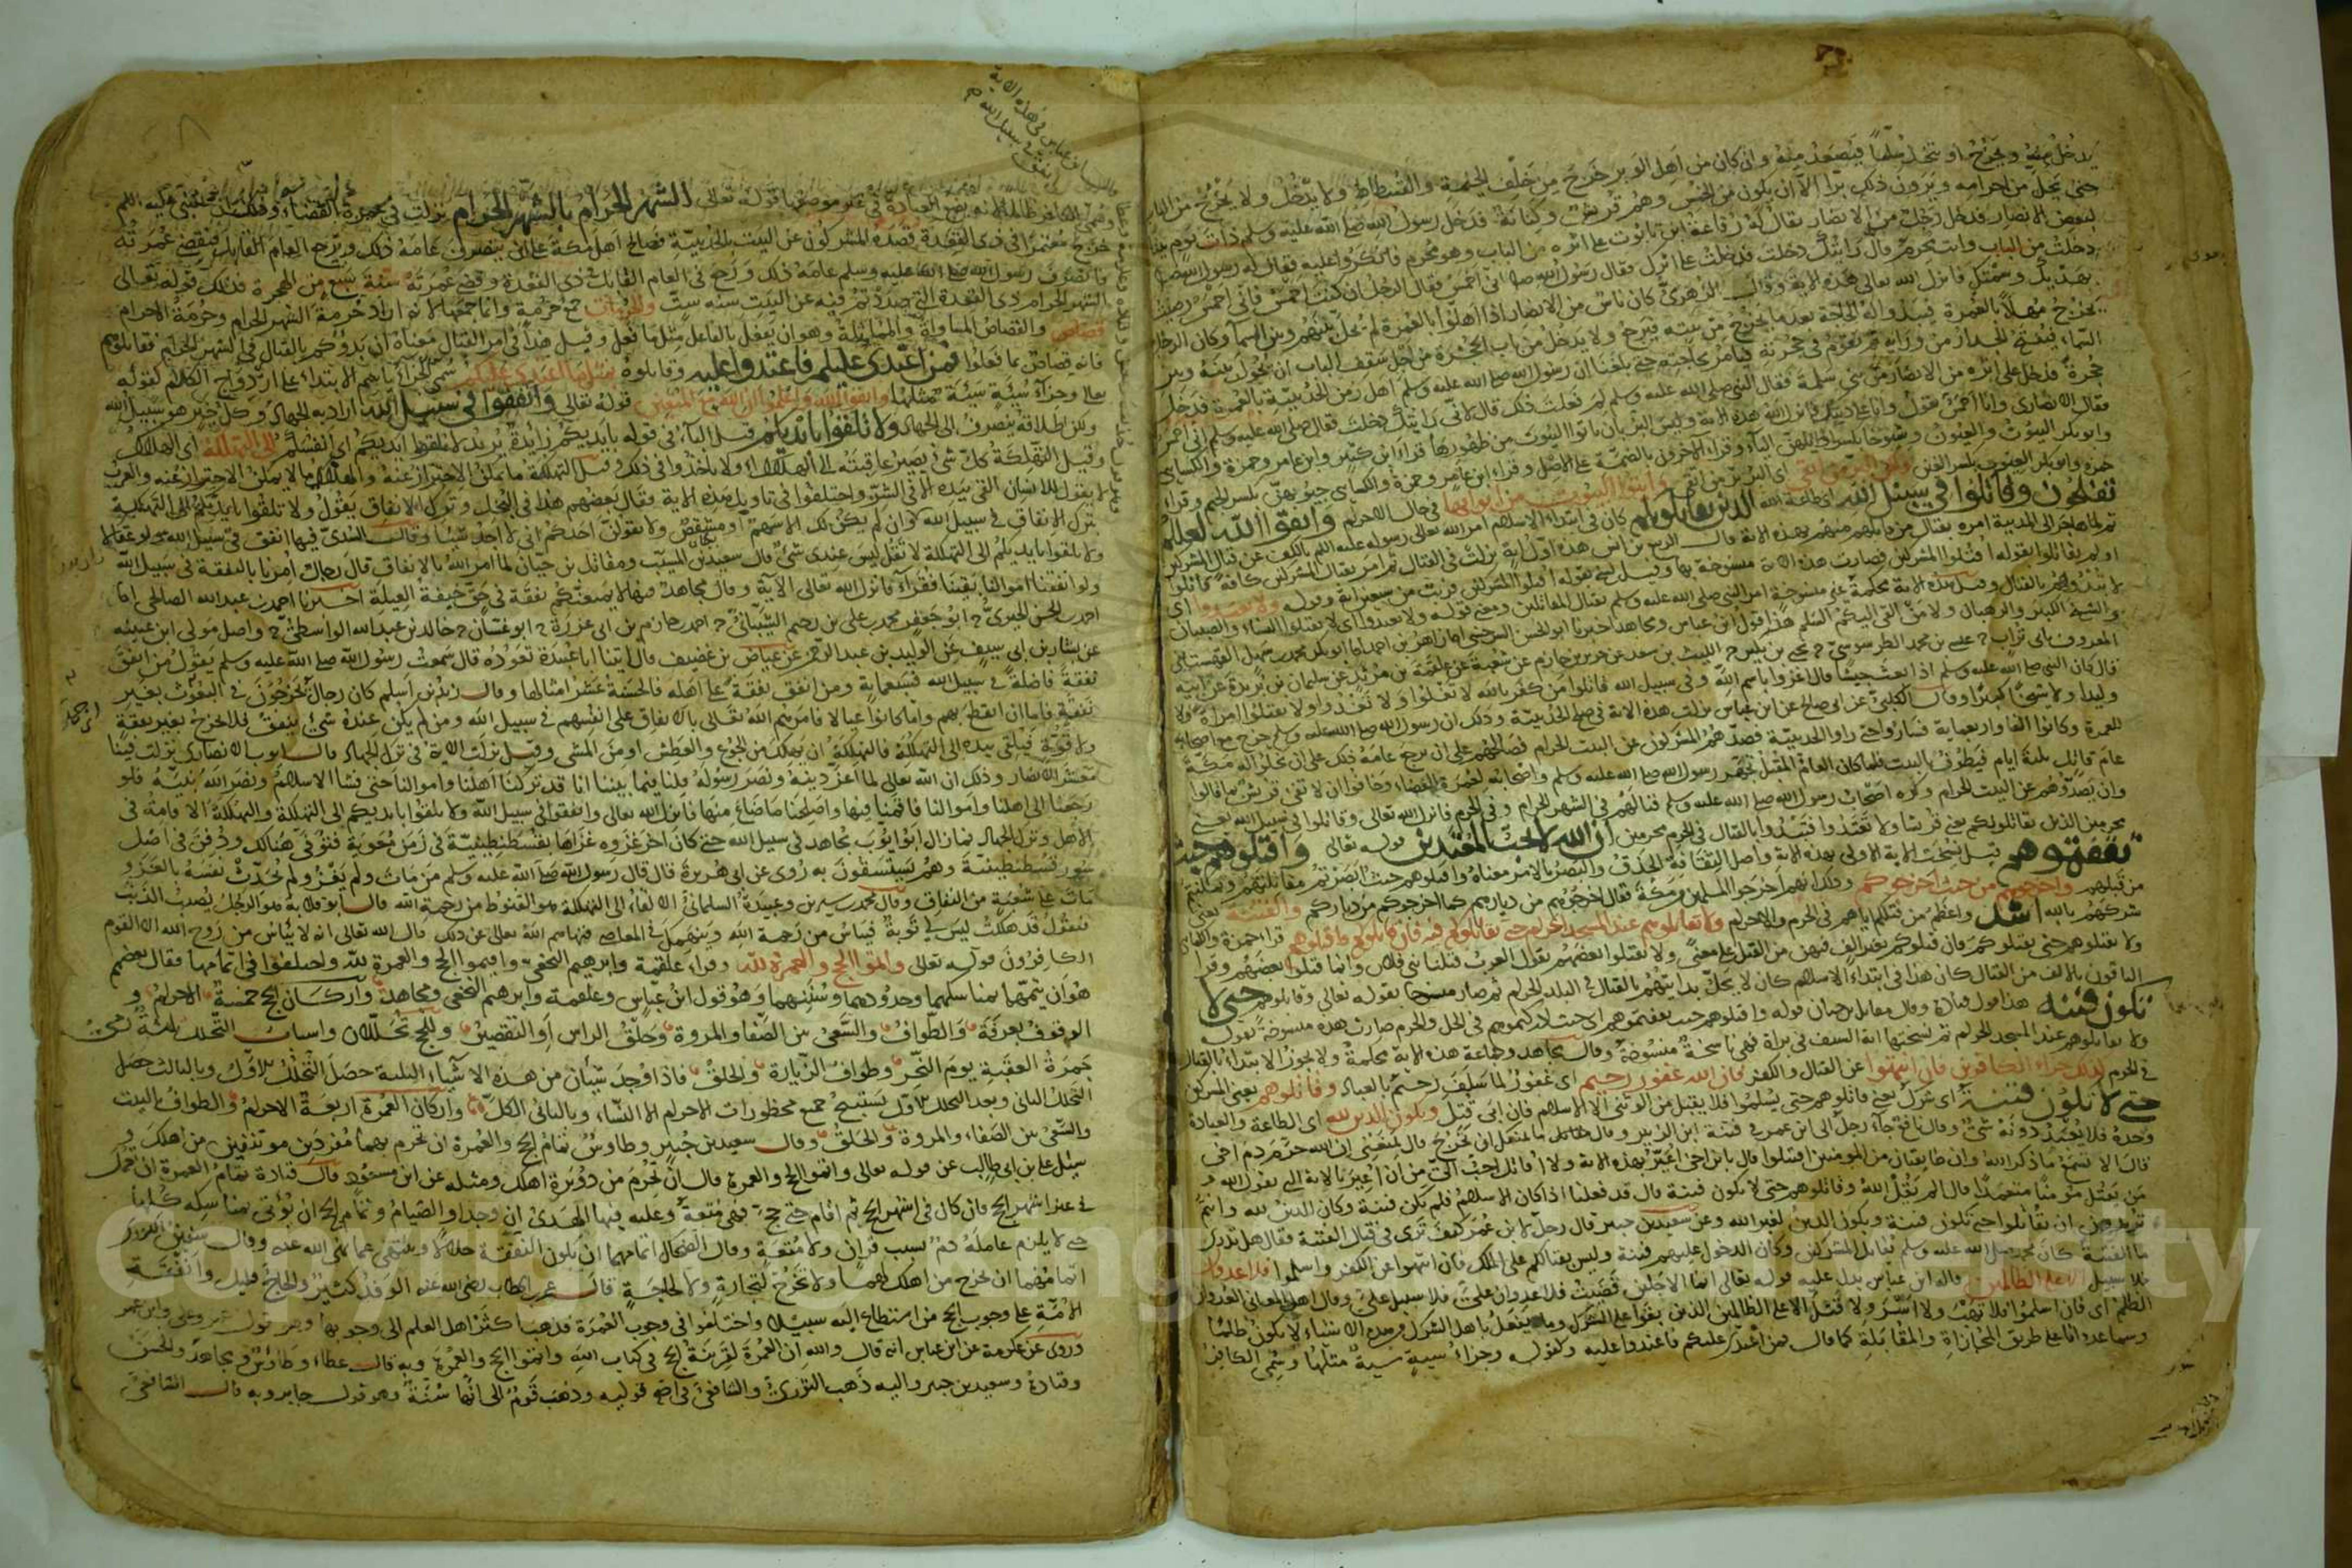 يدخل منه ويخرج او يتخذ سلما فيصعد منه وان كان من اهل الوبر خرج من خلف الخيمة والفسطاط ولا يدخل ولا يخرج من الباب
حتى يحل من احرامه ويرون ذلك برا الا ان يكون من الحمس وهم قريش وكنانة فدخل رسول الله صلى الله عليه وسلم ذات يوم بيتا
لبعض الانصار فدخل رجل من الانصار يقال له رفاعة ابن تابوت على اثره من الباب وهو محرم فانكروا عليه فقال له رسول الله
دخلت من الباب وانت محرم قال رايتك دخلت فدخلت على اثرك فقال رسول الله اني احمس فقال الرجل ان كنت احمس فاني احمس رضيت
بهديك وسمتك فانزل الله تعالى هذه الاية وقال الزهري كان ناس من الانصار اذا اهلوا بالعمرة لم يحل بينهم وبين السما وكان الرجل
يخرج مهلا بالعمرة فيبدو له الحاجة بعد ما يخرج من بيته فيرجع ولا يدخل من باب الحجرة من اجل سقف الباب ان يحول بينه وبين
السماء فيفتح الجدار من ورايه ثم يقوم في حجرته فيامر بحاجته حتى بلغنا ان رسول الله صلى الله عليه وسلم اهل زمن الحديبية بالعمرة فدخل
حجرة فدخل على اثره من الانصار من بني سلمة فقال النبي صلى الله عليه وسلم لم فعلت ذلك قال لاني رايتك دخلت فقال صلى الله عليه وسلم اني احمس
فقال الانصاري وانا احمس يقول وانا على دينك فانزل الله هذه الاية وليس البر بان تاتوا البيوت من ظهورها قراء ابن كثير وابن عامر وحمزة والكسائي
وابو بكر البيوت والعيون وشيوخا بكسر اوايلهن الباء وقراء الاخرون بالضمة على الاصل وقراء ابن عامر وحمزة والكسائي جيوبهن بكسر الجيم وقراء
حمزة وابو بكر الغيوب بكسر الغين ولكن البر من اتقى اى البر بر من اتقى وأتوا البيوت من ابوابها في حال الاحرام واتقوا الله لعلكم
تفلحون وقاتلوا في سبيل الله اى طاعة الله الذين يقاتلونكم كان في ابتداء الاسلام امر الله تعالى رسوله عليه السلم بالكف عن قتال المشركين
ثم لما هاجر الى المدينة امره بقتال من قاتلهم منهم بهذه الاية قال الربيع بن انس هذه اول اية نزلت في القتال ثم امر بقتال المشركين كافة قاتلوا
او لم يقاتلوا بقوله اقتلوا المشركين فصارت هذه الاية منسوخة بها وقيل نسخ بقوله اقتلوا المشركين قريب من سبعين اية وقوله ولا تعتدوا اى
لا تبدؤهم بالقتال وقيل هذه الاية محكمة غير منسوخة امر النبي صلى الله عليه وسلم بقتال المقاتلين ومعنى قوله ولا تعتدوا اى لا تقتلوا النساء والصبيان
والشيخ الكبير والرهبان ولا من القى اليكم السلم هذا قول ابن عباس ومجاهد
قال كان النبي صلى الله عليه وسلم اذا بعث جيشا قال اغزوا باسم الله وفي سبيل الله قاتلوا من كفر بالله لا تغلوا ولا تغدروا ولا تقتلوا امراة ولا
وليدا ولا شيخا كبيرا وقال الكلبي عن ابي صالح عن ابن عباس نزلت هذه الاية في صلح الحديبية وذلك ان رسول الله صلى الله عليه وسلم خرج مع اصحابه
للعمرة وكانوا الفا واربعماية فساروا حتى نزلوا الحديبية فصدهم المشركون عن البيت الحرام فصالحهم على ان يرجع عامه ذلك على ان يخلوا له مكة
عام قابل ثلثة ايام فيطوف بالبيت فلما كان العام المقبل تجهز رسول الله صلى الله عليه وسلم واصحابه لعمرة القضاء وخافوا ان لا تفي قريش بما قالوا
وان يصدوهم عن البيت الحرام وكره اصحاب رسول الله صلى الله عليه وسلم قتالهم في الشهر الحرام وفي الحرم فانزل الله تعالى وقاتلوا في سبيل الله يعني
محرمين الذين يقاتلونكم يعني قريشا ولا تعتدوا فتبدوا بالقتال في الحرم محرمين ان الله لا يحب المعتدين قوله تعالى واقتلوهم حيث
ثقفتموهم قيل نسخت الاية الاولى بهذه الاية واصل الثقافة الحذق والبصر بالامر معناه واقتلوهم حيث ابصرتم مقاتلتهم وتمكنتم
من قتلهم واخرجوهم من حيث اخرجوكم وذلك انهم اخرجوا المسلمين من مكة فقال اخرجوهم من ديارهم كما اخرجوكم من دياركم والفتنة يعني
شركهم بالله اشد واعظم من قتلكم اياهم في الحرم والاحرام ولا تقاتلوهم عند المسجد الحرام حتى يقاتلوكم فيه فان قاتلوكم فاقتلوهم قرا حمزة والكسائي
ولا تقتلوهم حتى يقتلوكم فان قتلوكم بغير الف فيهن من القتل على معنى ولا تقتلوا بعضهم يقول العرب قتلنا بني فلان وانما قتلوا بعضهم وقرا
الباقون بالالف من القتال كان هذا في ابتداء الاسلام كان لا يحل بدايتهم بالقتال في البلد الحرام ثم صار منسوخا بقوله تعالى وقاتلوهم حتى لا
تكون فتنة هذا قول قتادة وقال مقاتل بن حيان قوله واقتلوهم حيث ثقفتموهم اى حيث ادركتموهم في الحل والحرم صارت هذه منسوخة بقوله
ولا تقاتلوهم عند المسجد الحرام ثم نسختها اية السيف في براة فهي ناسخة منسوخة وقال مجاهد وجماعة هذه الاية محكمة ولا يجوز الابتداء بالقتال
في الحرم كذلك جزاء الكافرين فان انتهوا عن القتال والكفر فان الله غفور رحيم اى غفور لما سلف رحيم بالعباد وقاتلوهم يعني المشركين
حتى لا تكون فتنة اى شرك يعني قاتلوهم حتى يسلموا فلا يقبل من الوثني الا الاسلام فان ابى قتل ويكون الدين لله اى الطاعة والعبادة
وحده فلا يعبد دونه شئ وقال نافع جاء رجل الى ابن عمر في فتنة ابن الزبير وقال ما يمنعك ان تخرج قال يمنعني ان الله حرم دم اخي
قال الا تسمع ما ذكر الله وان طايفتان من المومنين اقتتلوا قال يا ابن اخي اعير بهذه الاية ولا اقاتل احب الى من ان اعير بالاية التي يقول الله و
من يقتل مومنا متعمدا قال الم يقل الله وقاتلوهم حتى لا تكون فتنة قال قد فعلنا اذ كان الاسلام قليل فلم تكن فتنة وكان الدين لله وانتم
تريدون ان تقاتلوا حتى تكون فتنة ويكون الدين لغير الله وعن سعيد بن جبير قال رجل لابن عمر كيف ترى في قتال الفتنة فقال هل تدرك
ما الفتنة كان محمد صلى الله عليه وسلم يقاتل المشركين وكان الدخول عليهم فتنة وليس بقتالكم على الملك فان انتهوا عن الكفر واسلموا فلا عدوان
فلا سبيل الا على الظالمين قاله ابن عباس يدل عليه قوله تعالى ايما الاجلين قضيت فلا عدوان علي فلا سبيل علي وقال اهل المعاني العدوان
الظلم اى فان اسلموا فلا نهب ولا اسر ولا قتل الا على الظالمين الذين بقوا على الشرك وما يفعل باهل الشرك من هذه الاشياء لا يكون ظلما
وسماه عدوانا على طريق المجازاة والمقابلة كما قال فمن اعتدى عليكم فاعتدوا عليه وكقوله وجزاء سيئة سيئة مثلها وسمى الكافر
الشهر الحرام بالشهر الحرام نزلت في عمرة القضاء
خرج معتمرا في ذي القعدة فصده المشركون عن البيت بالحديبية فصالح اهل مكة على ان ينصرف عامه ذلك ويرجع العام القابل فيقضي عمرته
فانصرف رسول الله صلى الله عليه وسلم عامه ذلك ورجع في العام القابل في ذي القعدة وقضى عمرته سنة سبع من الهجرة فذلك قوله تعالى
الشهر الحرام ذي القعدة التي صددتم فيه عن البيت سنة ست والحرمات جمع حرمة وانما جمعها لانه اراد حرمة الشهر الحرام وحرمة الاحرام
قصاص والقصاص المساواة والمماثلة وهو ان يفعل بالفاعل مثل ما فعل وقيل هذا في امر القتال معناه ان بدؤكم بالقتال في الشهر الحرام فقاتلوهم
فانه قصاص بما فعلوا فمن اعتدى عليكم فاعتدوا عليه وقاتلوه بمثل ما اعتدى عليكم سمى الجزاء باسم الابتداء على ازدواج الكلام كقوله
تعالى وجزاء سيئة سيئة مثلها واتقوا الله واعلموا ان الله مع المتقين قوله تعالى وانفقوا في سبيل الله اراد به الجهاد وكل خير هو سبيل الله
ولكن اطلاقه ينصرف الى الجهاد ولا تلقوا بايديكم قيل الباء في قوله بايديكم زايدة يريد لا تلقوا ايديكم اى انفسكم الى التهلكة اى الهلاك
وقيل التهلكة كل شئ يصير عاقبته الى الهلاك اى ولا ياخذوا في ذلك وقيل التهلكة ما يمكن الاحتراز عنه والهلاك ما لا يمكن الاحتراز عنه والعرب
لا يقول للانسان القى بيده الا في الشر واختلفوا في تاويل هذه الاية فقال بعضهم هذا في البخل وترك الانفاق يقول ولا تلقوا بايديكم الى التهلكة
بترك الانفاق في سبيل الله
ولا تلقوا بايديكم الى التهلكة لا تقل ليس عندي شئ قال سعيد بن المسيب ومقاتل بن حيان لما امر الله بالانفاق قال رجال امرنا بالنفقة في سبيل الله
ولو انفقنا اموالنا بقينا فقراء فانزل الله تعالى الاية وقال مجاهد فيها لا يمنعنكم نفقة في حق خيفة العيلة اخبرنا احمد بن عبد الله الصالحي
عن بشار بن ابي سيف عن الوليد بن عبد الرحمن عن عياض بن غضيف قال اتينا ابا عبيدة نعوده قال سمعت رسول الله صلى الله عليه وسلم يقول من انفق
نفقة فاضلة في سبيل الله فبسبعماية ومن انفق نفقة على اهله فالحسنة عشر امثالها وقال زيد بن اسلم كان رجال يخرجون في البعوث بغير
نفقة فاما ان انقطع بهم واما كانوا عيالا فامرهم الله تعالى بالانفاق على انفسهم في سبيل الله ومن لم يكن عنده شئ ينفق فلا يخرج بغير نفقة
ولا قوة فيلقي بيده الى التهلكة فالتهلكة ان يهلك من الجوع والعطش او من المشي وقيل نزلت الاية في ترك الجهاد قال ابو ايوب الانصاري نزلت فينا
معشر الانصار وذلك ان الله تعالى لما اعز دينه ونصر رسوله قلنا فيما بيننا انا قد تركنا اهلنا واموالنا حتى فشا الاسلام ونصر الله نبيه فلو
رجعنا الى اهلنا واموالنا فاقمنا فيها واصلحنا ما ضاع منها فانزل الله تعالى وانفقوا في سبيل الله ولا تلقوا بايديكم الى التهلكة والتهلكة الاقامة في
الاهل وترك الجهاد فما زال ابو ايوب يجاهد في سبيل الله حتى كان اخر غزوة غزاها بقسطنطينية في زمن معوية فتوفى هنالك ودفن في اصل
سور قسطنطينية وهم يستسقون به روى عن ابي هريرة قال قال رسول الله صلى الله عليه وسلم من مات ولم يغز ولم يحدث نفسه بالغزو
مات على شعبة من النفاق وقال محمد بن سيرين وعبيدة السلماني الالقاء الى التهلكة هو القنوط من رحمة الله قال ابو قلابة هو الرجل يصيب الذنب
فيقول قد هلكت ليس لي توبة فيياس من رحمة الله وينهمك في المعاصي فنهاهم الله تعالى عن ذلك قال الله تعالى انه لا يياس من روح الله الا القوم
الكافرون قوله تعالى واتموا الحج والعمرة لله وقراء علقمة وابرهيم النخعي واقيموا الحج والعمرة لله واختلفوا في اتمامها فقال بعضهم
هو ان يتمهما بمناسكهما وحدودهما وسننهما وهو قول ابن عباس وعلقمة وابرهيم النخعي ومجاهد واركان الحج خمسة الاحرام و
الوقوف بعرفة والطواف والسعى بين الصفا والمروة وحلق الراس او التقصير وللحج تحللان واسباب التحلل ثلثة رمي
جمرة العقبة يوم النحر وطواف الزيارة والحلق فاذا وجد شيئان من هذه الاشياء الثلثة حصل التحلل الاول وبالثالث حصل
التحلل الثاني وبعد التحلل الاول تستبيح جميع محظورات الاحرام الا النساء وبالثاني الكل واركان العمرة اربعة الاحرام والطواف بالبيت
والسعى بين الصفاء والمروة والحلق وقال سعيد بن جبير وطاوس تمام الحج والعمرة ان تحرم بهما مفردين موتنفين من اهلك و
سئل علي بن ابي طالب عن قوله تعالى واتموا الحج والعمرة قال ان تحرم من دويرة اهلك ومثله عن ابن مسعود قال قتادة تمام العمرة ان تعمل
في غير اشهر الحج فان كان في اشهر الحج ثم اقام حتى حج فهي متعة وعليه فيها الهدى ان وجد او الصيام وتمام الحج ان يؤتى بمناسكه كلها
حتى لا يلزم عامله دم بسبب قران ولا متعة وقال الضحاك اتمامهما ان تكون النفقة حلالا وينتهي عما نهى الله عنه وقال سفين الثوري
اتمامهما ان تخرج من اهلك لهما ولا تخرج لتجارة ولا لحاجة قال عمر بن الخطاب رضى الله عنه الوفد كثير والحاج قليل واتفقت
الامة على وجوب الحج من استطاع اليه سبيلا واختلفوا في وجوب العمرة فذهب اكثر اهل العلم الى وجوبها وهو قول عمر وعلي وابن عمر
وروى عن عكرمة عن ابن عباس انه قال والله ان العمرة لقرينة الحج في كتاب الله واتموا الحج والعمرة وبه قال عطاء وطاوس ومجاهد والحسن
وقتادة وسعيد بن جبير واليه ذهب الثوري والشافعي في اصح قوليه وذهب قوم الى انها سنة وهو قول جابر وبه قال الشافعي